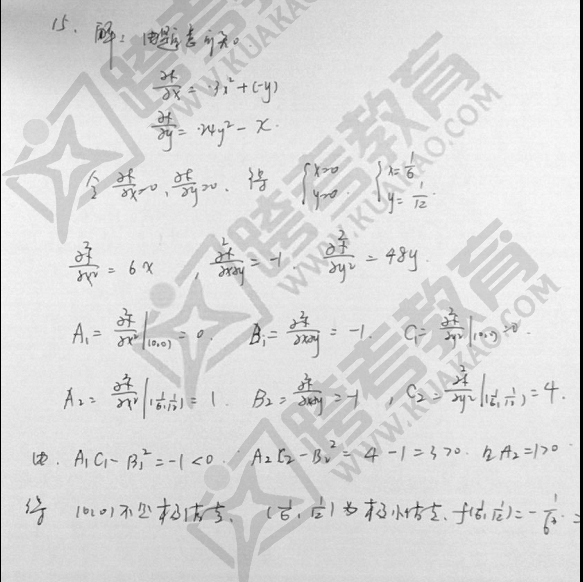 15. 解：由题意可知
∂f/∂x = 3x² + (-y)
∂f/∂y = 24y² - x.
令 ∂f/∂x=0, ∂f/∂y=0. 得 {x=0 y=0. {x=1/6 y=1/12.
∂²f/∂x² = 6x , ∂²f/∂x∂y = -1. ∂²f/∂y² = 48y.
A₁ = ∂²f/∂x²|(0,0) = 0. B₁ = ∂²f/∂x∂y = -1. C₁ = ∂²f/∂y²|(0,0) = 0.
A₂ = ∂²f/∂x²|(1/6,1/12) = 1. B₂ = ∂²f/∂x∂y = -1 , C₂ = ∂²f/∂y²|(1/6,1/12) = 4.
由. A₁C₁-B₁² = -1 <0. A₂C₂-B₂² = 4-1=3>0. 且A₂=1>0
得 (0,0)不是极值点. (1/6, 1/12)为极小值点. f(1/6,1/12) = -1/6³ =
跨考教育
WWW.KUAKAO.COM